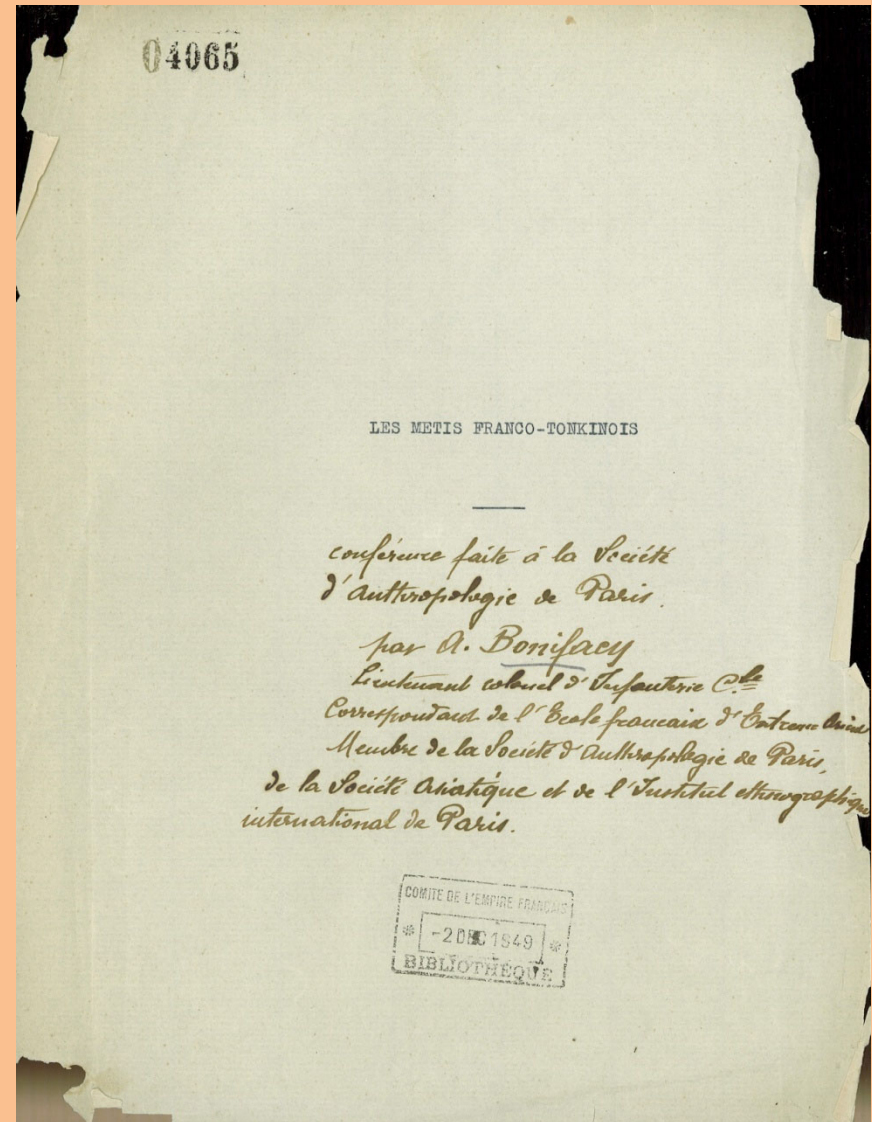 04065
LES METIS FRANCO-TONKINOIS
conférence faite à la Société
d'Anthropologie de Paris.
par A. Bonifacy
Lieutenant colonel d'Infanterie Cle
Correspondant de l'Ecole francaise d'Extreme Orient
Membre de la Société d'Anthropologie de Paris,
de la Société Asiatique et de l'Institut ethnographique
international de Paris.
COMITE DE L'EMPIRE FRANÇAIS
-2 DEC 1949
BIBLIOTHÈQUE